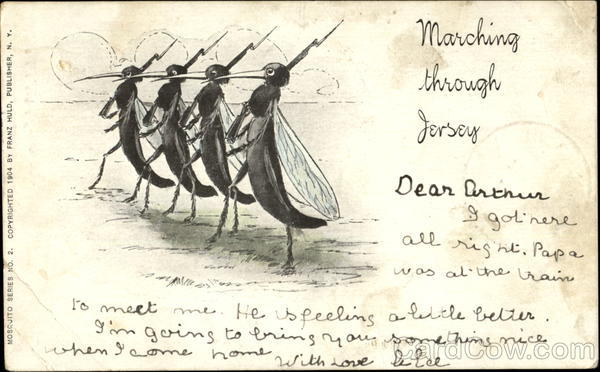 MOSQUITO SERIES NO. 2. COPYRIGHTED 1904 BY FRANZ HULD, PUBLISHER, N. Y.
Marching
through
Jersey
Dear Arthur
I got here
all right. Papa
was at the train
to meet me. He is feeling a little better.
I'm going to bring you something nice
when I come home
With Love
CardCow.com